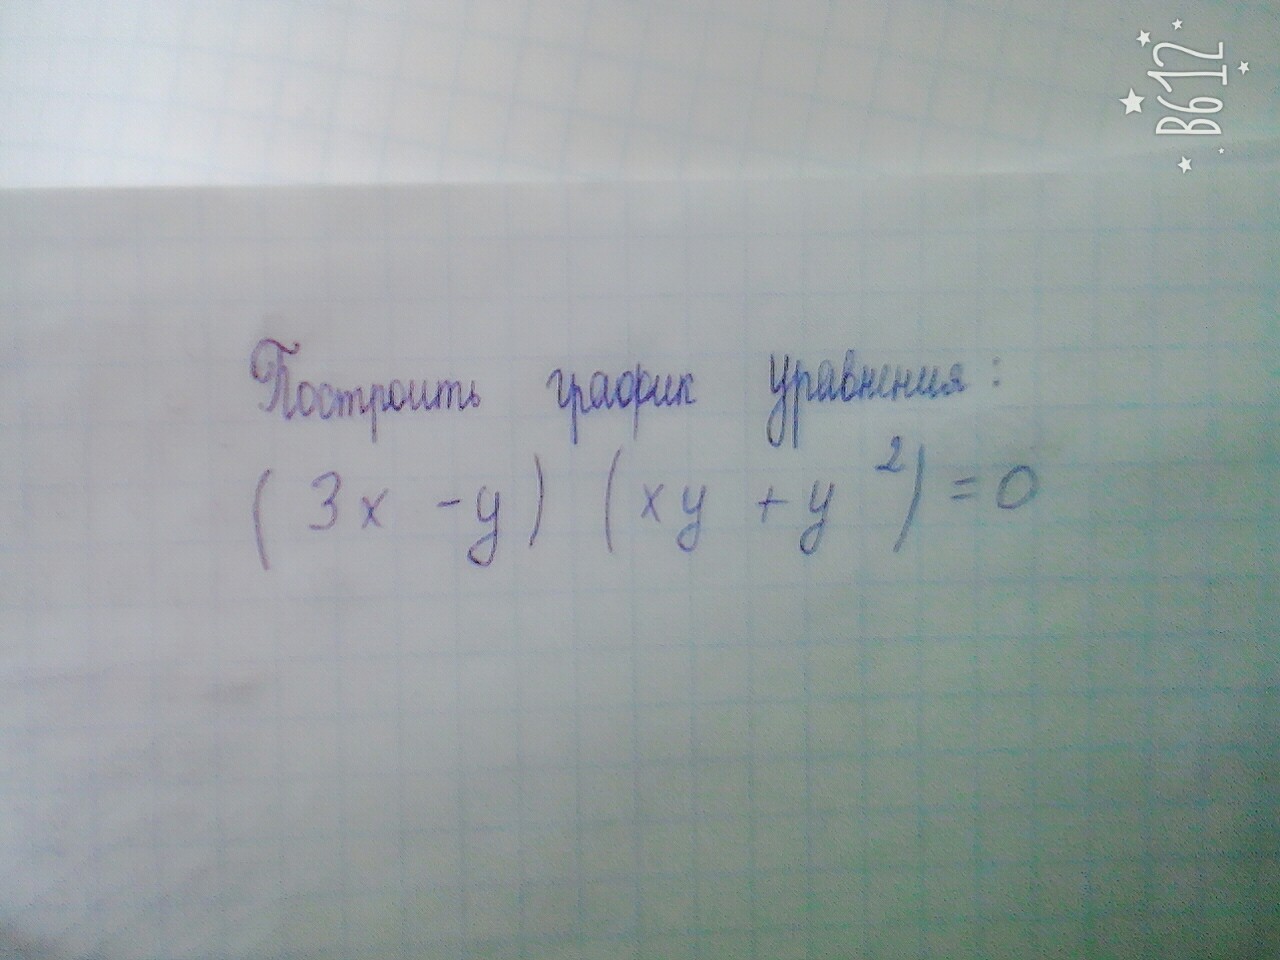 B612
Построить график уравнения:
(3x - y) (xy + y²) = 0